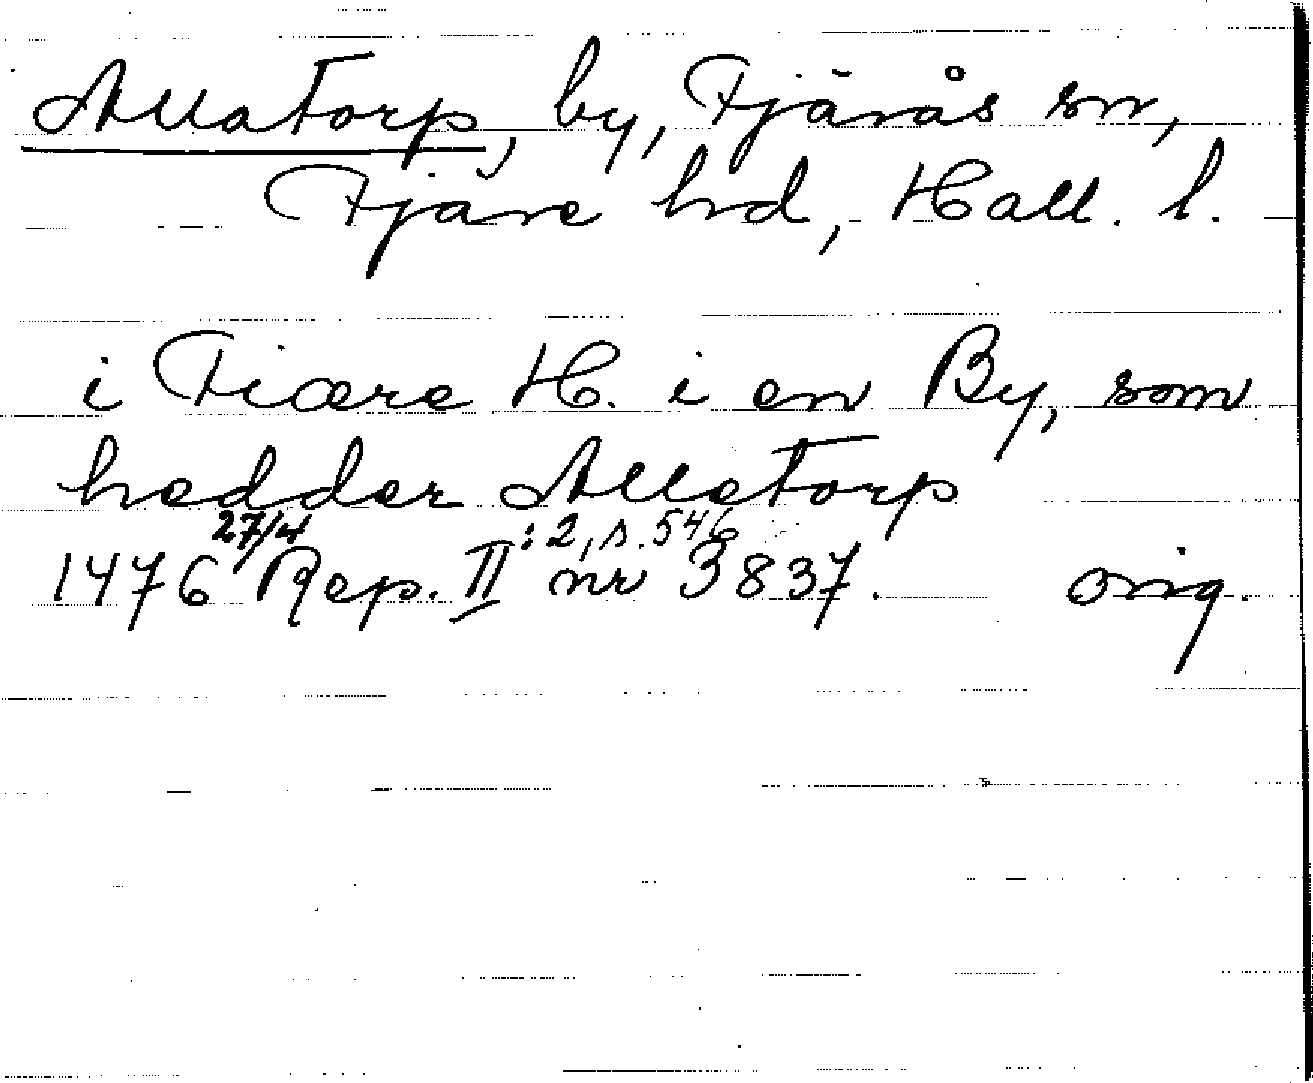 Allatorp, by, Fjärås sn,
Fjäre hd, Hall. l.
i Fiære H. i en By, som
hedder Alletorp
1476 27/4 Rep. II:2, s. 546 nr 3837. orig.